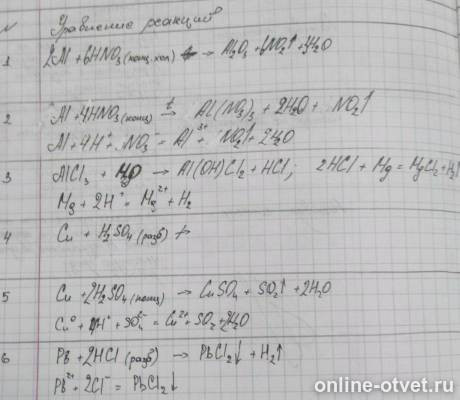 N Уравнение реакций
1 2Al + 6HNO3 (конц. хол) → Al2O3 + 6NO2↑ + 3H2O
2 Al + 4HNO3 (конц) t→ Al(NO3)3 + 2H2O + NO2↑
Al + 4H+ + NO3- = Al3+ + NO2↑ + 2H2O
3 AlCl3 + HO → Al(OH)Cl2 + HCl; 2HCl + Mg = MgCl2 + H2↑
Mg + 2H+ = Mg2+ + H2
4 Cu + H2SO4 (разб) ↛
5 Cu + 2H2SO4 (конц) → CuSO4 + SO2↑ + 2H2O
Cu0 + 4H+ + SO4 2- = Cu2+ + SO2 + 2H2O
6 Pb + 2HCl (разб) → PbCl2↓ + H2↑
Pb2+ + 2Cl- = PbCl2↓
online-otvet.ru